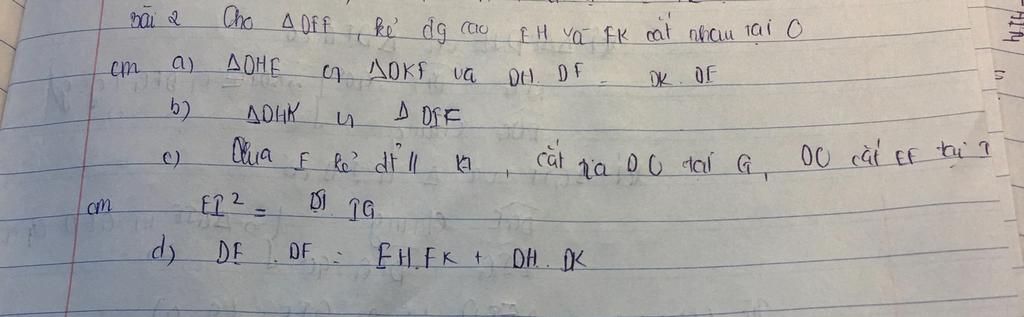 Bài 2 Cho ΔDEF, kẻ đg cao EH và FK cắt nhau tại O
cm a) ΔDHE ᔕ ΔDKF và DH. DF = DK. DE
b) ΔDHK ᔕ Δ DEF
c) Qua E kẻ đt // , cắt tia DO tại G, DO cắt EF tại I
cm EI² = DI IG
d) DE . DF = EH.FK + DH. DK